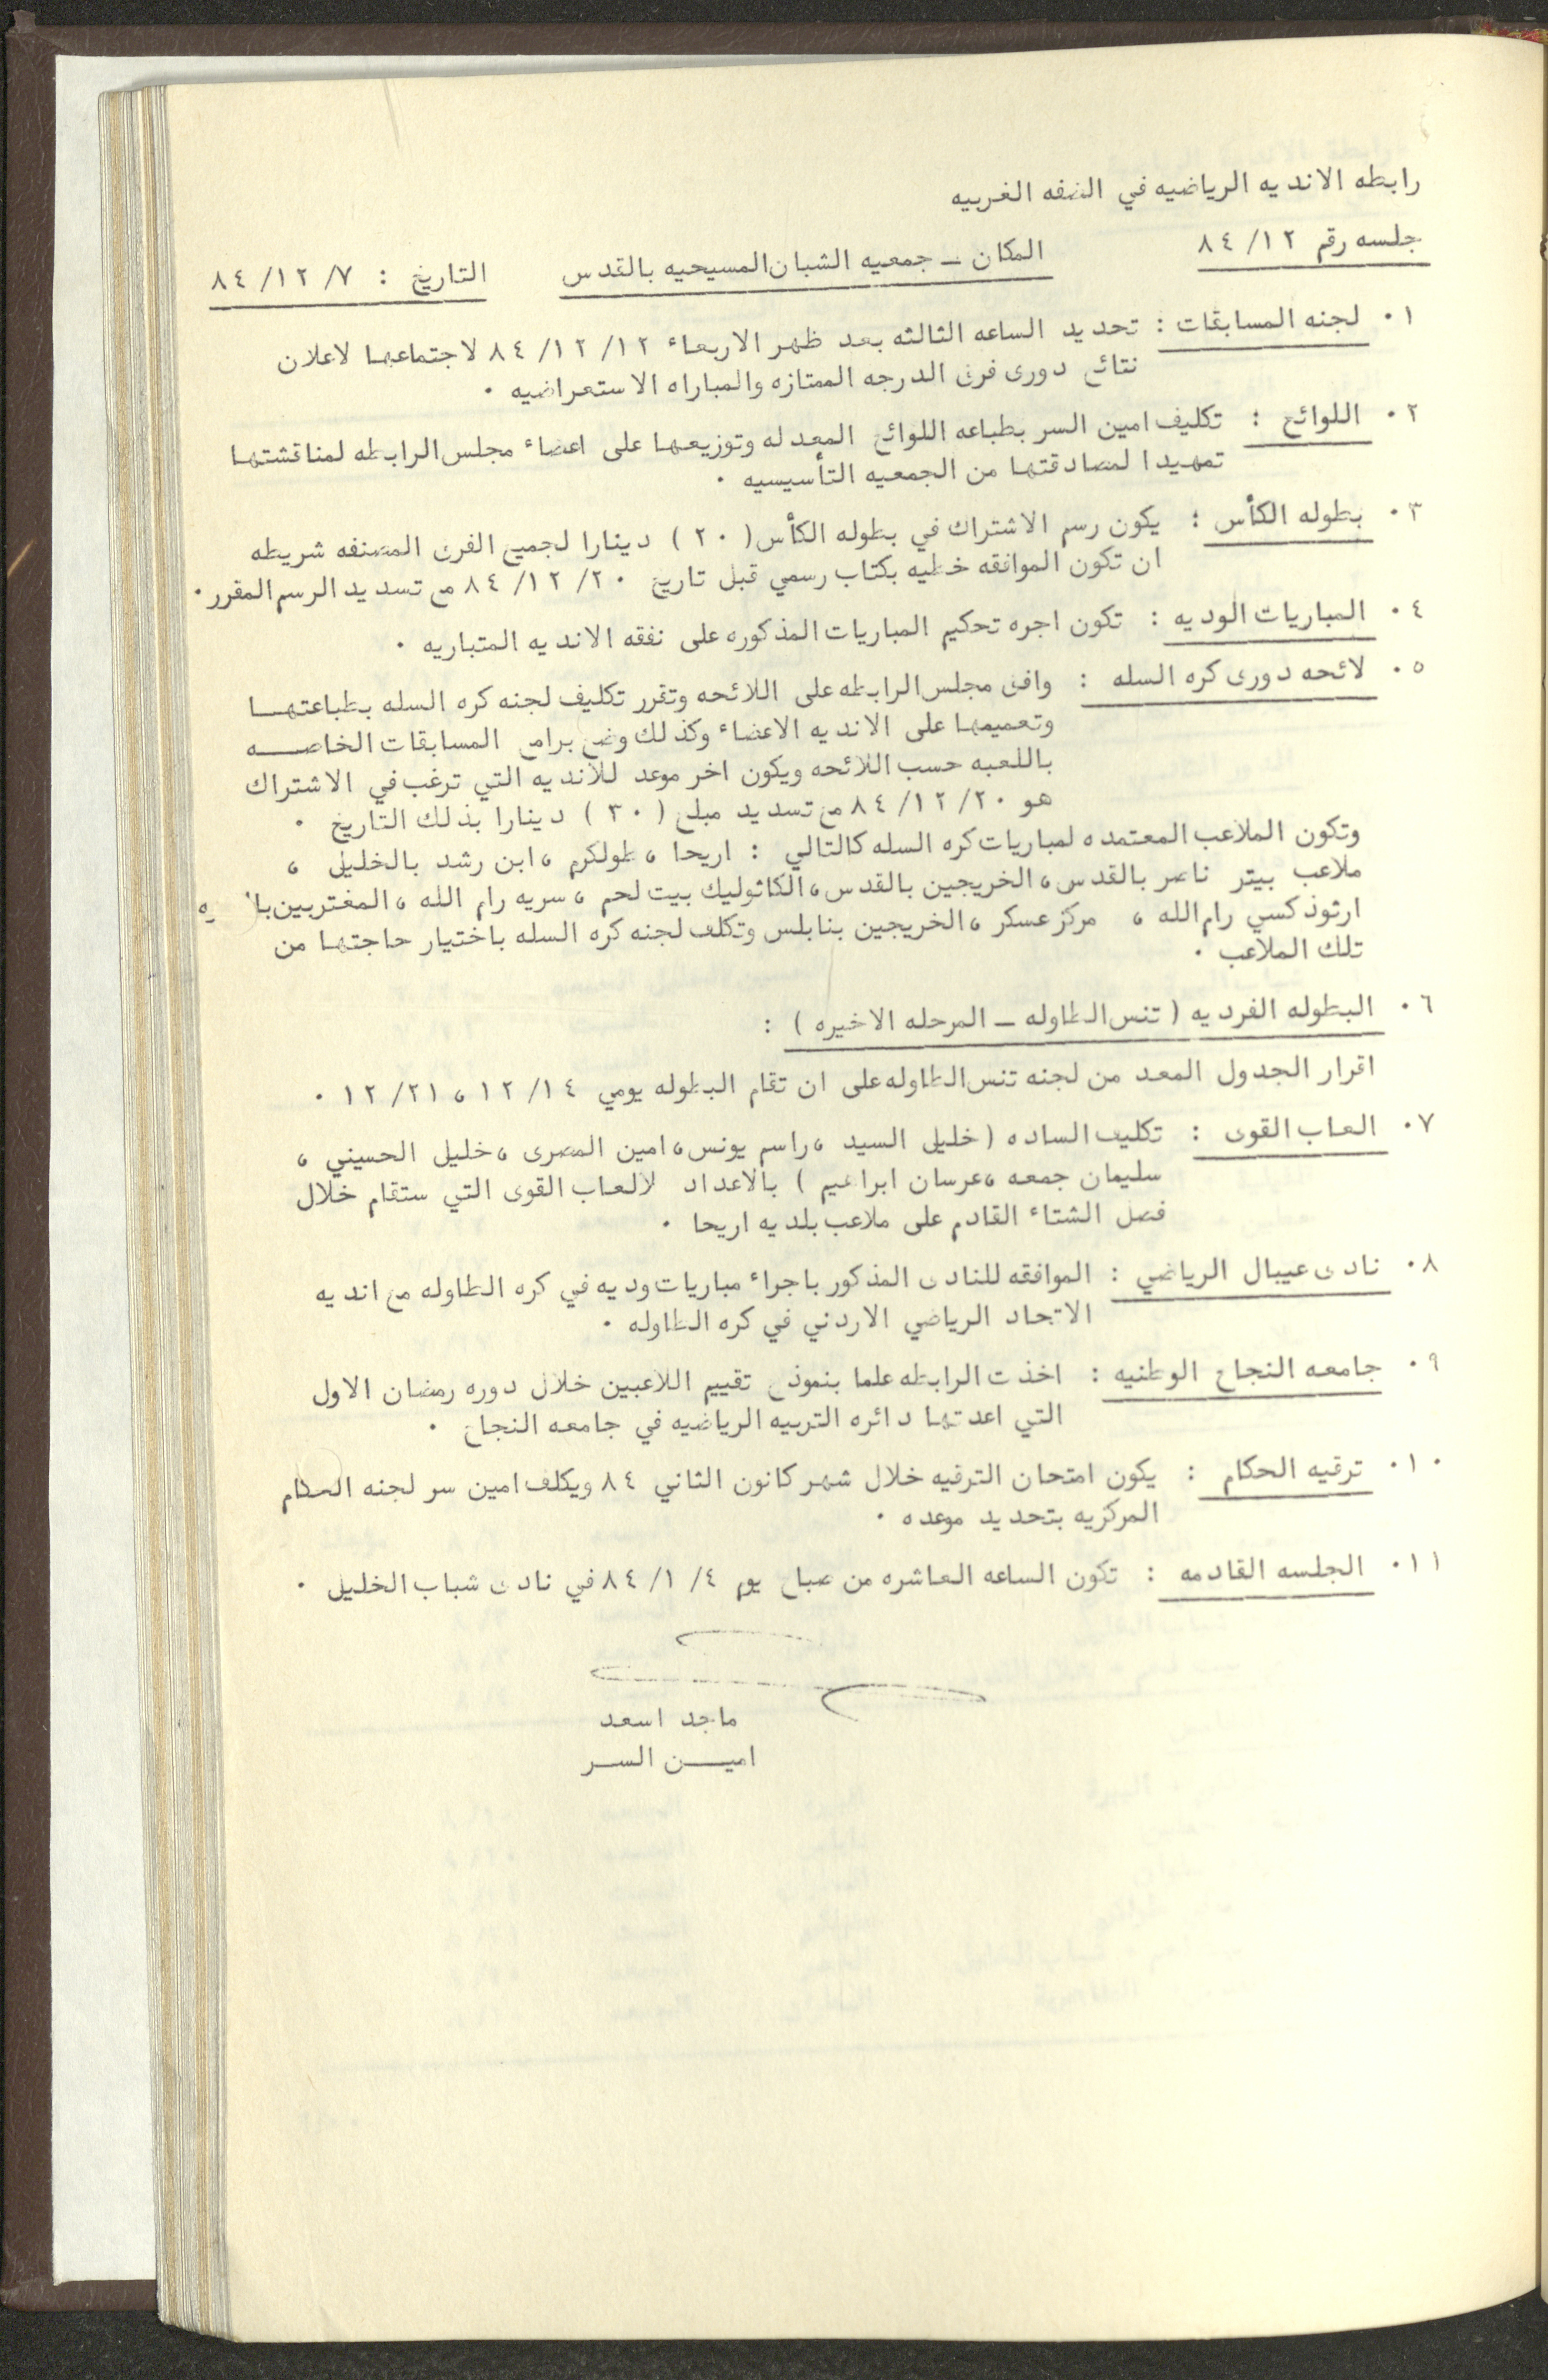 رابطه الانديه الرياضيه في الضفه الغربيه
جلسه رقم ١٢/ ٨٤ المكان ــ جمعيه الشبان المسيحيه بالقدس التاريخ : ٧/ ١٢/ ٨٤
١٠ لجنه المسابقات : تحديد الساعه الثالثه بعد ظهر الاربعاء ١٢/ ١٢/ ٨٤ لاجتماعها لاعلان
نتائج دورى فرق الدرجه الممتازه والمباراه الاستعراضيه ٠
٢٠ اللوائح : تكليف امين السر بطباعه اللوائح المعدله وتوزيعها على اعضاء مجلس الرابطه لمناقشتها
تمهيدا لمصادقتها من الجمعيه التأسيسيه ٠
٣٠ بطوله الكأس : يكون رسم الاشتراك في بطوله الكأس ( ٢٠ ) دينارا لجميع الفرق المصنفه شريطه
ان تكون الموافقه خطيه بكتاب رسمي قبل تاريخ ٢٠/ ١٢/ ٨٤ مع تسديد الرسم المقرر٠
٤٠ المباريات الوديه : تكون اجره تحكيم المباريات المذكوره على نفقه الانديه المتباريه ٠
٥٠ لائحه دورى كره السله : وافق مجلس الرابطه على اللائحه وتقرر تكليف لجنه كره السله بطباعتهــا
وتعميمها على الانديه الاعضاء وكذلك وضع برامج المسابقات الخاصــه
باللعبه حسب اللائحه ويكون اخر موعد للانديه التي ترغب في الاشتراك
هو ٢٠/ ١٢/ ٨٤ مع تسديد مبلغ ( ٣٠ ) دينارا بذلك التاريخ ٠
وتكون الملاعب المعتمده لمباريات كره السله كالتالي : اريحا ، طولكرم ، ابن رشد بالخليل ،
ملاعب بيتر ناصر بالقدس ، الخريجين بالقدس ، الكاثوليك بيت لحم ، سريه رام الله ، المغتربين
ارثوذكسي رام الله ، مركز عسكر ، الخريجين بنابلس وتكلف لجنه كره السله باختيار حاجتها من
تلك الملاعب ٠
٦٠ البطوله الفرديه ( تنس الطاوله ــ المرحله الاخيره ) :
اقرار الجدول المعد من لجنه تنس الطاوله على ان تقام البطوله يومي ١٤/ ١٢ ، ٢١/ ١٢ ٠
٧٠ العاب القوى : تكليف الساده ( خليل السيد ، راسم يونس ، امين المصرى ، خليل الحسيني ،
سليمان جمعه ، عرسان ابراهيم ) بالاعداد لالعاب القوى التي ستقام خلال
فصل الشتاء القادم على ملاعب بلديه اريحا ٠
٨٠ نادى عيبال الرياضي : الموافقه للنادى المذكور باجراء مباريات وديه في كره الطاوله مع انديه
الاتحاد الرياضي الاردني في كره الطاوله ٠
٩٠ جامعه النجاح الوطنيه : اخذت الرابطه علما بنموذج تقييم اللاعبين خلال دوره رمضان الاول
التي اعدتها دائره التربيه الرياضيه في جامعه النجاح ٠
١٠٠ ترقيه الحكام : يكون امتحان الترقيه خلال شهر كانون الثاني ٨٤ ويكلف امين سر لجنه الحكام
المركزيه بتحديد موعده ٠
١١٠ الجلسه القادمه : تكون الساعه العاشره من صباح يوم ٤/ ١/ ٨٤ في نادى شباب الخليل ٠
ماجد اسعد
اميــن الســر